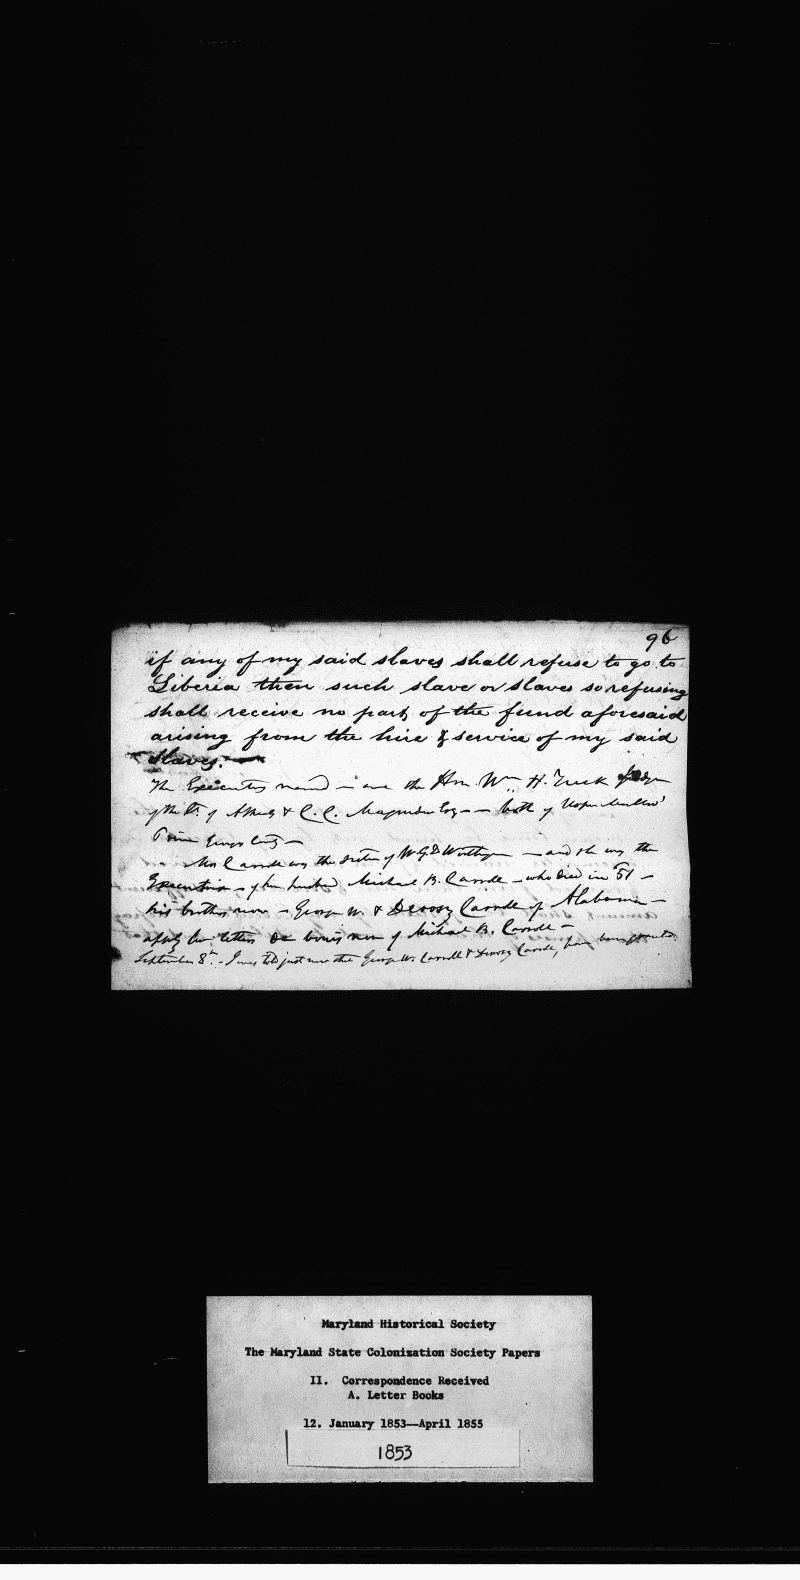 96
if any of my said slaves shall refuse to go to
Liberia then such slave or slaves so refusing
shall receive no part of the fund aforesaid
arising from the hire & service of my said
slaves.
The Executors named — are the Hon Wm H. Tuck
of the Ct. of & C. C. Magruder Esq — both of Upper Marlboro'
Prince Georges County —
Mrs Carroll was the sister of W. G. D. Worthington — and she was the
Executrix — of her husband Michael B. Carroll — who died in '51 —
his brothers now — George W. & Deroszy Carroll of Alabama —
apply for letters de bonis non of Michael B. Carroll —
September 8th. - I was told just now that George W. Carroll & Deroszy Carroll, have been granted.
Maryland Historical Society
The Maryland State Colonization Society Papers
II. Correspondence Received
A. Letter Books
12. January 1853--April 1855
1853